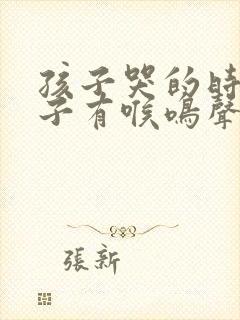 孩子哭的時
子有喉鳴聲
張新